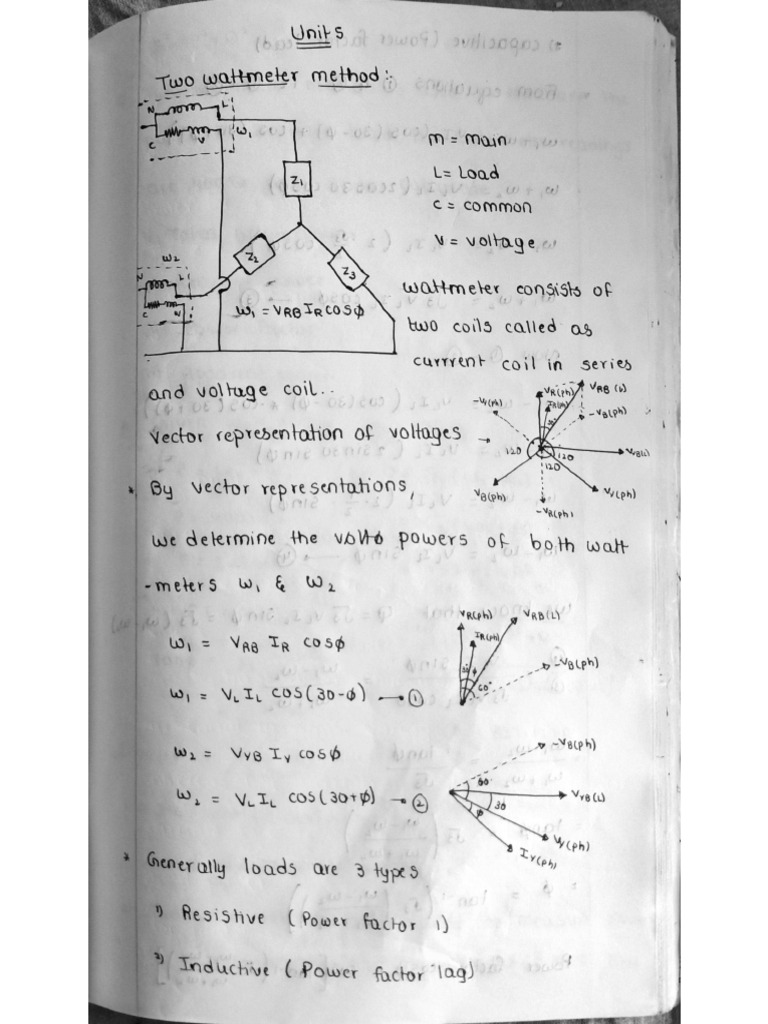 Units
Two wattmeter method:
N L
C V W1
Z1
m = main
L = Load
C = common
V = voltage
W2
N L
C V
Z2 Z3
W1 = VRB IR cosϕ
wattmeter consists of
two coils called as
currrent coil in series
and voltage coil..
vector representation of voltages →
VR(ph) VRB (L)
IR(ph)
-VY(ph) -VB(ph)
30°
120 120 120
VYB(L)
VB(ph) VY(ph)
-VR(ph)
* By vector representations,
we determine the powers of both watt
-meters W1 & W2
W1 = VRB IR cosϕ
W1 = VL IL cos(30-ϕ) → ①
VR(ph) VRB(L)
IR(ph)
-VB(ph)
30 ϕ 60°
W2 = VYB IY cosϕ
W2 = VL IL cos(30+ϕ) → ②
-VB(ph)
60°
VYB(L)
30
ϕ
VY(ph)
IY(ph)
* Generally loads are 3 types
1) Resistive (Power factor 1)
2) Inductive (Power factor lag)